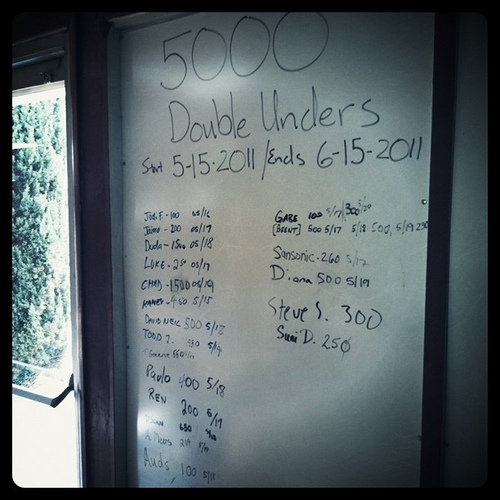 5000
Double Unders
Start 5-15-2011 / Ends 6-15-2011
100 05/16
200 05/17
Duda - 1500 05/18
LUKE - 250 05/17
CHAD - 1500 05/19
450 5/15
500 5/18
TODD J. 5/19
Paulo 400 5/18
REN 200 5/17
650
Auds 100 5/11
GABE 100 5/17 300 5/20
[BRENT] 500 5/17 5/18 500, 5/19 250
Sansonic - 260 5/17
Diana 500 5/19
Steve S. 300
Suni D. 250